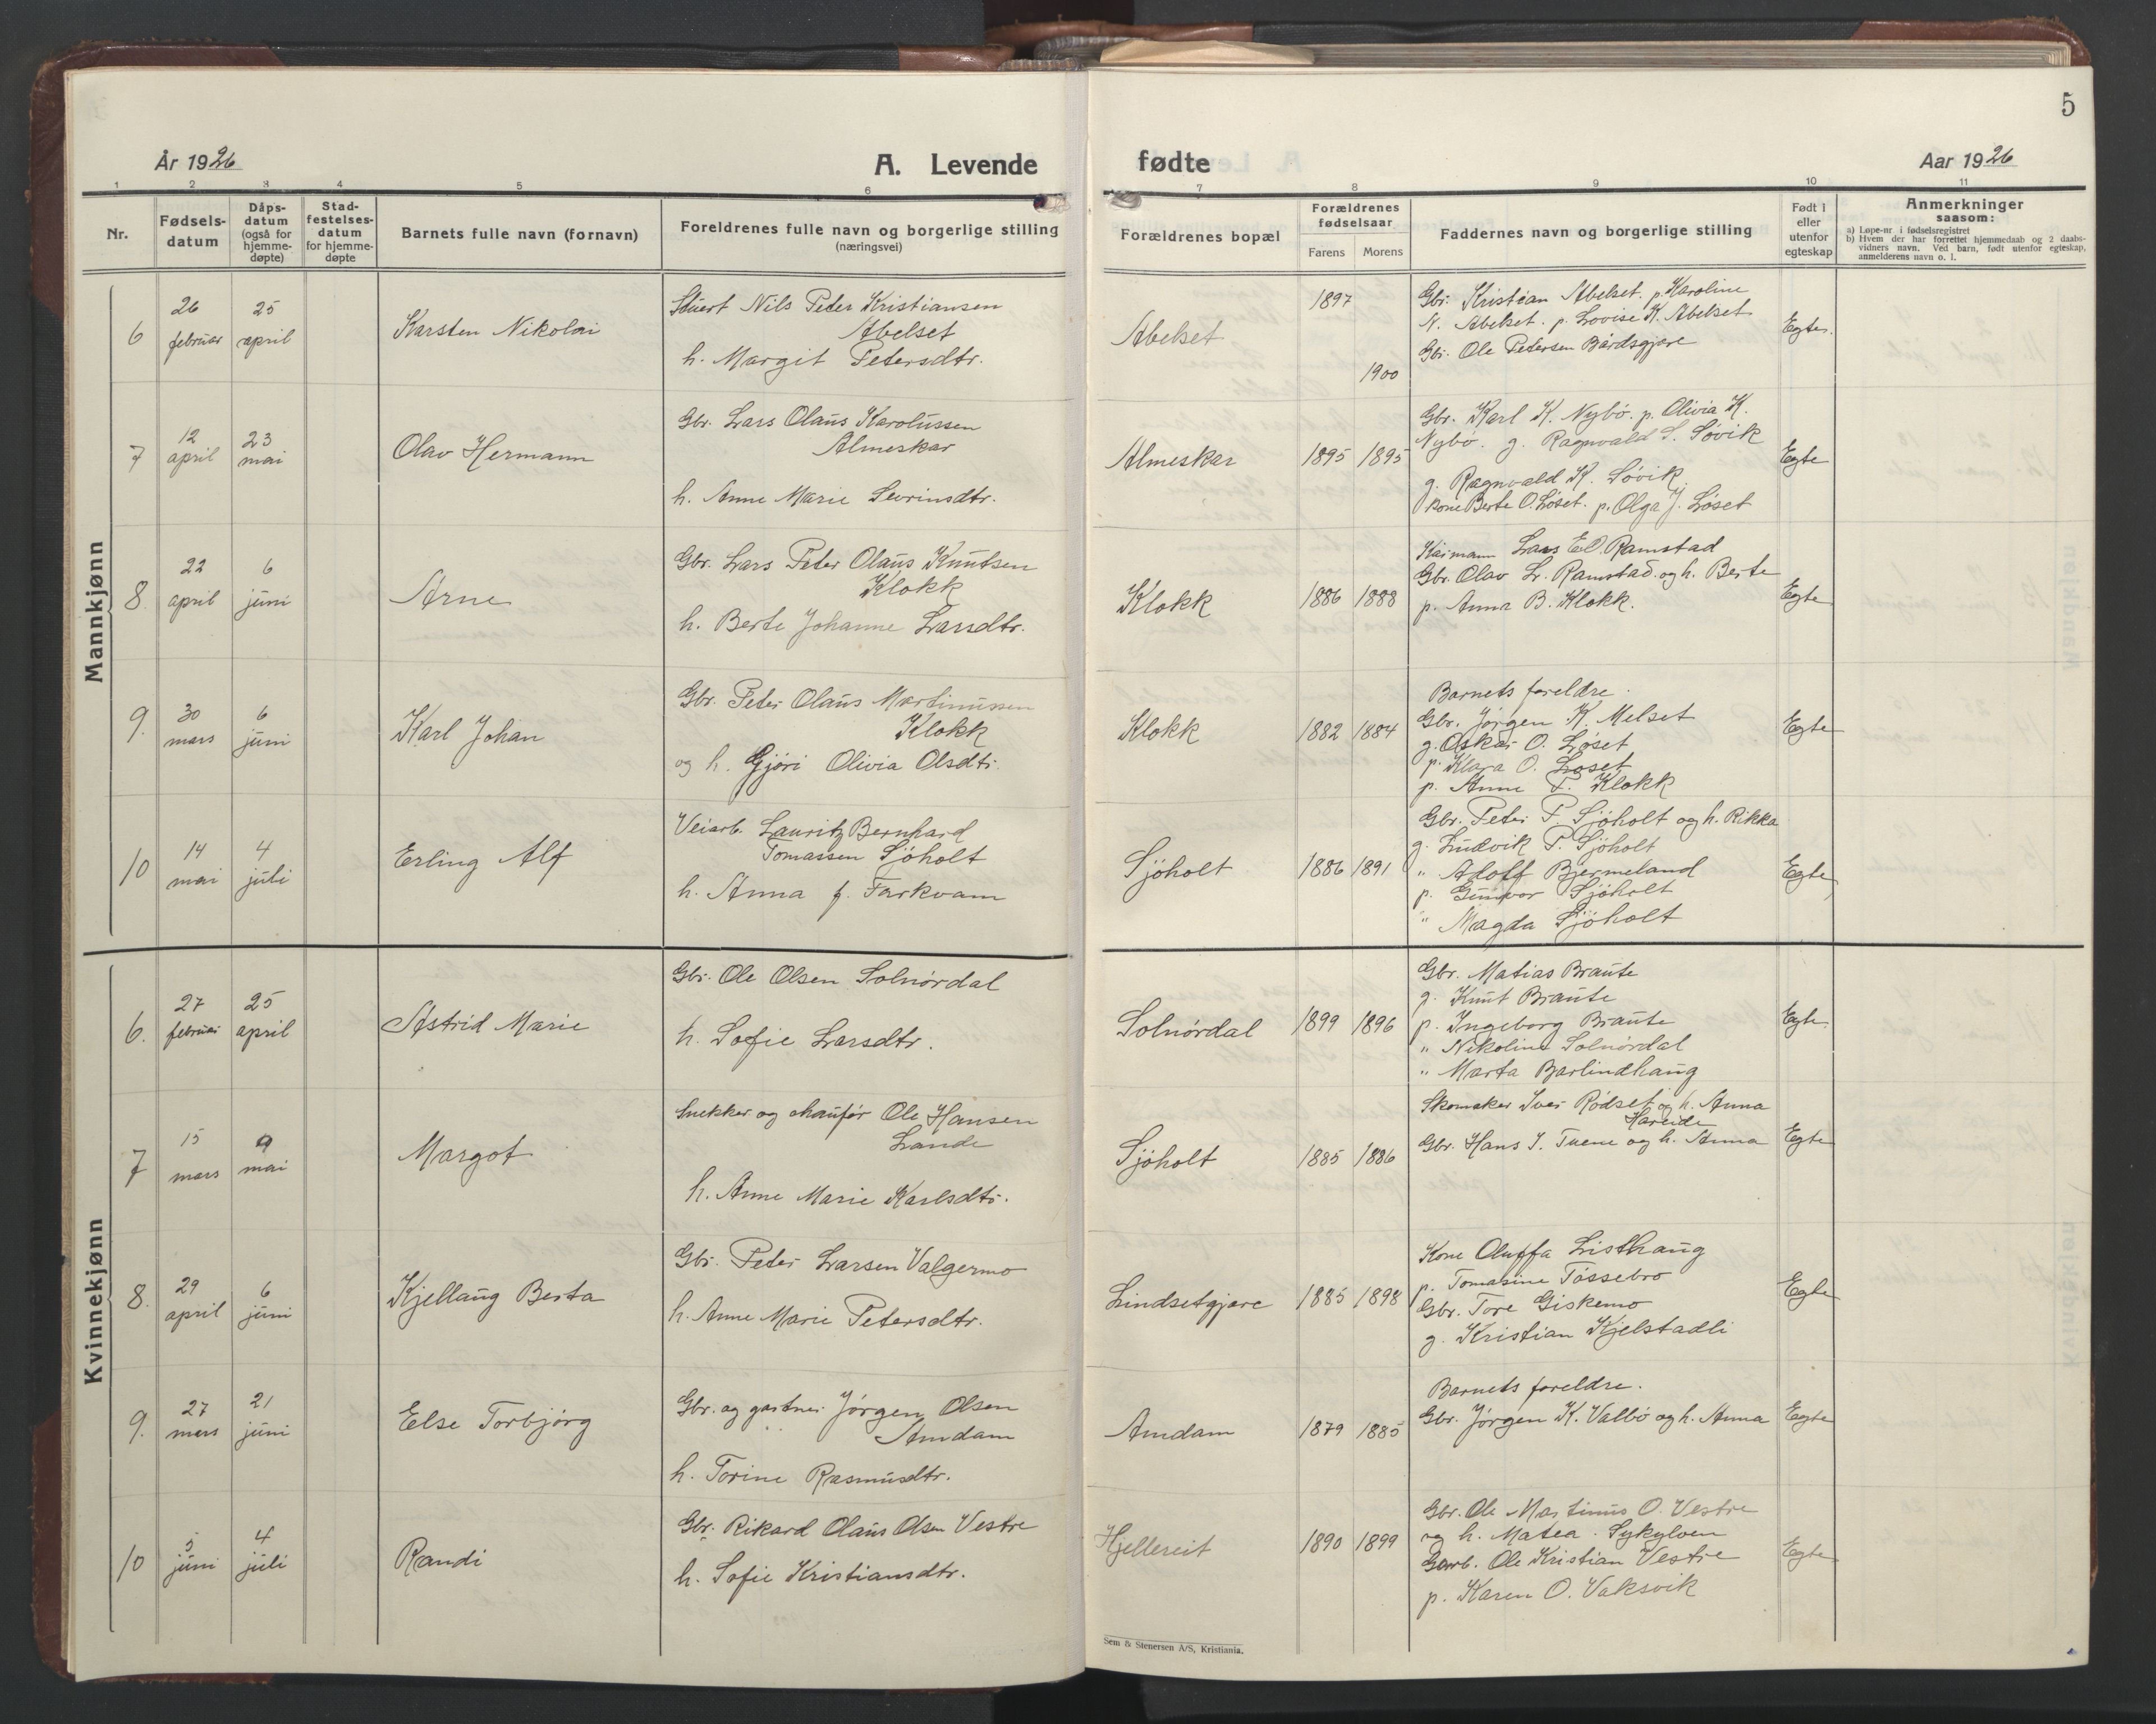 5
År 1926
A. Levende
fødte
Aar 1926
1 2 3 4 5 6 7 8 9 10 11
Nr.
Fødsels-
datum
Dåps-
datum
(også for
hjemme-
døpte)
Stad-
festelses-
datum
for hjemme-
døpte
Barnets fulle navn (fornavn)
Foreldrenes fulle navn og borgerlige stilling
(næringsvei)
Forældrenes bopæl
Forældrenes
fødselsaar
Farens Morens
Faddernes navn og borgerlige stilling
Født i
eller
utenfor
egteskap
Anmerkninger
saasom:
a) Løpe-nr. i fødselsregistret
b) Hvem der har forrettet hjemmedaab og 2 daabs-
vidners navn. Ved barn, født utenfor egteskap,
anmelderens navn o. l.
Mannkjønn
6
26
februar
25
april
Karsten Nikolai
Stuert Nils Peter Kristiansen
Abelset
h. Margit Petersdtr.
Abelset
1897
1900
Gbr. Kristian Abelset. p. Karoline
N. Abelset. p. Lovise K. Abelset
Gbr. Ole Petersen Bårdsgjære
Egte.
7
12
april
23
mai
Olav Hermann
Gbr. Lars Olaus Karolussen
Almeskar
h. Anne Marie Sevrinsdtr.
Almeskar
1895 1895
Gbr. Karl K. Nybø. p. Olivia K.
Nybø. g. Ragnvald S. Søvik
g. Ragnvald K. Søvik.
Kone Berte O. Løset. p. Olga J. Løset
Egte
8
22
april
6
juni
Arne
Gbr. Lars Peter Olaus Knutsen
Klokk
h. Berte Johanne Larsdtr.
Klokk
1886 1888
Lars Ed. Ramstad
Gbr. Olav L. Ramstad og h. Berte
p. Anna B. Klokk.
Egte
9.
30
mars
6
juni
Karl Johan
Gbr. Peter Olaus Martinussen
Klokk
og h. Gjøri Olivia Olsdtr.
Klokk
1882 1884
Barnets foreldre.
Gbr. Jørgen K. Melset
g. Oskar O. Løset
p. Klara O. Løset
p. Anne P. Klokk
Egte
10
14
mai
4
juli
Erling Alf
Veiarb. Lauritz Bernhard
Tomassen Sjöholt
h. Anna f. Farkvam
Sjöholt
1886 1891
Gbr. Peter P. Sjöholt og h. Rikka
g. Ludvik P. Sjöholt
" Adolf Bjermeland
p. Gunvor Sjöholt
" Magda Sjöholt
Egte
Kvinnekjønn
6.
27
februar
25
april
Astrid Marie
Gbr. Ole Olsen Solnørdal
h. Sofie Larsdtr.
Solnørdal
1899 1896
Gbr. Matias Braute
g. Knut Braute
p. Ingeborg Braute
" Nikoline Solnørdal
" Marta Barlindhaug
Egte.
7
15
mars
9
mai
Margot
Snekker og chauffør Ole Hansen
Lande
h. Anne Marie Karlsdtr.
Sjöholt
1885 1886
Skomaker Iver Rødset og h. Anna
Hareide
Gbr. Hans J. Tuene og h. Anna
Egte
8.
29
april
6
juni
Kjellaug Berta
Gbr. Peter Larsen Valgermo
h. Anne Marie Petersdtr.
Lindsetgjære
1885 1898
Kone Oluffa Listhaug
p. Tomasine Tøssebro
Gbr. Tore Giskemo
g. Kristian Kjelstadli
Egte
9.
27
mars
21
juni
Else Torbjørg
Gbr. og gartner Jørgen Olsen
Amdam
h. Torine Rasmusdtr.
Amdam
1879 1885
Barnets foreldre.
Gbr. Jørgen K. Valbø og h. Anna
Egte
10
5
juni
4
juli
Randi
Gbr. Rikard Olaus Olsen Vestre
h. Sofie Kristiansdtr.
Hjellereit
1890 1899
Gbr. Ole Martinus O. Vestre
og h. Matea. Sykylven
Garb. Ole Kristian Vestre
p. Karen O. Vaksvik
Egte
Sem & Stenersen A/S, Kristiania.